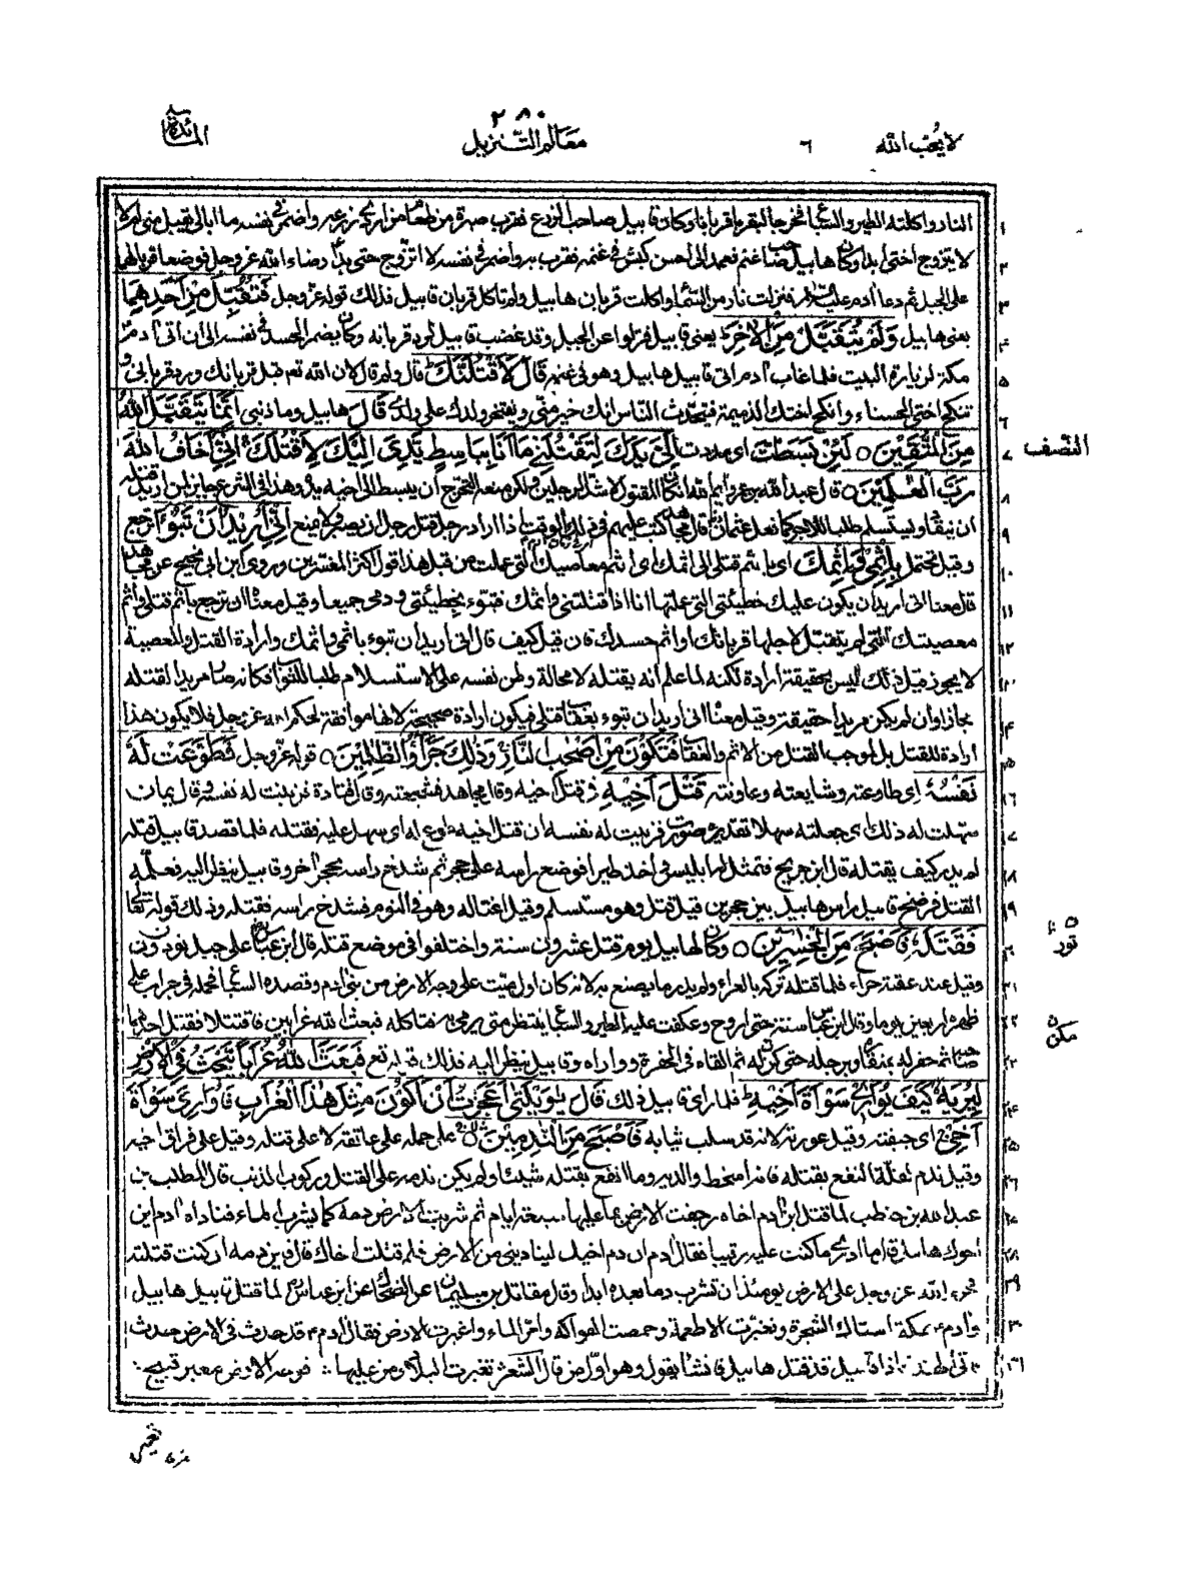 لا يحب الله ٦
٢٨٠
معالم التنزيل
المائدة
النار واكلته الطير والسباع فخرجا ليقربا قربانا وكان قابيل صاحب الزرع فقرب صبرة من طعام من اردء زرعه واضمر فى نفسه ما ابالى يقبل منى ام لا
لا يتزوج اختى ابدا وكان هابيل صاحب غنم فعمد الى احسن كبش فى غنمه فقرب به واضمر فى نفسه لا اتزوج حتى رضاء الله عز وجل فوضعا قربانهما
على الجبل ثم دعا ادم عليه فنزلت نار من السماء واكلت قربان هابيل ولم تاكل قربان قابيل فذلك قوله عز وجل فَتُقُبِّلَ مِنْ اَحَدِهِمَا
يعنى هابيل وَلَمْ يُتَقَبَّلْ مِنَ الْاٰخَرِ يعنى قابيل فنزلوا عن الجبل وقد غضب قابيل لرد قربانه وكان يضمر الحسد فى نفسه الى ان اتى ادم
مكة لزيارة البيت فلما غاب ادم اتى قابيل هابيل وهو فى غنمه قَالَ لَاَقْتُلَنَّكَ قال ولم قال لان الله تع قبل قربانك ورد قربانى و
تنكح اختى الحسناء وانكح اختك الذميمة فيتحدث الناس انك خير منى ويفتخر ولدك على ولدى قَالَ هابيل وما ذنبى اِنَّمَا يَتَقَبَّلُ اللهُ
مِنَ الْمُتَّقِيْنَ ۝ لَئِنْ بَسَطْتَّ اى مددت اِلَىَّ يَدَكَ لِتَقْتُلَنِىْ مَا اَنَا بِبَاسِطٍ يَّدِىَ اِلَيْكَ لِاَقْتُلَكَ اِنِّىْ اَخَافُ اللهَ
رَبَّ الْعٰلَمِيْنَ ۝ قال عبد الله بن عمرو وايم الله ان كان المقتول لاشد الرجلين ولكن منعه التحرج ان يبسط الى اخيه يده وهذا فى الشرع جايز لمن اريد قتله
ان ينقاد ويستسلم طلبا للاجر كما فعل عثمان قال مجاهد كتب عليهم فى ذلك الوقت اذا اراد رجل قتل رجل ان يصبر ولا يمنع اِنِّىْ اُرِيْدُ اَنْ تَبُوْٓءَا ترجع
وقيل تحتمل بِاِثْمِىْ وَاِثْمِكَ اى باثم قتلى الى اثمك اى اثم معاصيك التى عملت من قبل هذا قول اكثر المفسرين وروى ابن ابى نجيح عن مجاهد
قال معناه انى اريد ان يكون عليك خطيئتى التى عملتها انا اذا قتلتنى واثمك فتبوء بخطيئتى ودمى جميعا وقيل معناه ان ترجع باثم قتلى واثم
معصيتك التى لم يتقبل لاجلها قربانك او اثم حسدك فان قيل كيف قال انى اريد ان تبوء باثمى واثمك وارادة القتل والمعصية
لا يجوز قيل ذلك ليس بحقيقة ارادة لكنه لما علم انه يقتله لا محالة وطن نفسه على الاستسلام طلبا للثواب فكانه صار مريدا لقتله
مجازا وان لم يكن مريدا حقيقة وقيل معناه انى اريد ان تبوء بعقاب قتلى فيكون ارادة صحيحة لانها موافقة لحكم الله عز وجل فلا يكون هذا
ارادة للقتل بل لموجب القتل من الاثم والعقاب فَتَكُوْنَ مِنْ اَصْحٰبِ النَّارِ وَذٰلِكَ جَزَآؤُا الظّٰلِمِيْنَ ۝ قوله عز وجل فَطَوَّعَتْ لَهٗ
نَفْسُهٗ اى طاوعته وشايعته وعاونته قَتْلَ اَخِيْهِ فى قتل اخيه وقال مجاهد فشجعته وقال قتادة فزينت له نفسه وقال يمان
سهلت له ذلك اى جعلته سهلا تقديره صورت فزينت له نفسه ان قتل اخيه طوع له اى سهل عليه فقتله فلما قصد قابيل قتله
لم يدر كيف يقتله قال ابن جريج فتمثل له ابليس فى اخذ طيرا فوضع راسه على حجر ثم شدخ راسه بحجر اخر وقابيل ينظر اليه فعلمه
القتل فرضخ قابيل راس هابيل بين حجرين قيل قتل وهو مستسلم وقيل اغتاله وهو فى النوم فشدخ راسه فقتله وذلك قوله تعالى
فَقَتَلَهٗ فَاَصْبَحَ مِنَ الْخٰسِرِيْنَ ۝ وكان لهابيل يوم قتل عشرون سنة واختلفوا فى موضع قتله قال ابن عباس على جبل نود
وقيل عند عقبة حراء فلما قتله تركه بالعراء ولم يدر ما يصنع به لانه كان اول ميت على وجه الارض من بنى ادم وقصده السباع فحمله فى جراب على
ظهره اربعين يوما وقال ابن عباس سنة حتى اروح وعكفت عليه الطير والسباع ينتظر متى يرمى به فتاكله فبعث الله غرابين فاقتتلا فقتل احدهما
صاحبه ثم حفر له بمنقاره وبرجله حتى مكن له ثم القاه فى الحفرة وواراه وقابيل ينظر اليه فذلك قوله تع فَبَعَثَ اللهُ غُرَابًا يَّبْحَثُ فِى الْاَرْضِ
لِيُرِيَهٗ كَيْفَ يُوَارِىْ سَوْاَةَ اَخِيْهِ فلما راى قابيل ذلك قَالَ يٰوَيْلَتٰٓى اَعَجَزْتُ اَنْ اَكُوْنَ مِثْلَ هٰذَا الْغُرَابِ فَاُوَارِىَ سَوْاَةَ
اَخِىْ اى جيفته وقيل عورته لانه قد سلب ثيابه فَاَصْبَحَ مِنَ النّٰدِمِيْنَ على حمله على عاتقه لا على قتله وقيل على فراق اخيه
وقيل ندم لقلة النفع بقتله فانه اسخط والديه وما انتفع بقتله شيئا ولم يكن ندمه على القتل وركوب الذنب قال المطلب بن
عبد الله بن حنطب لما قتل ابن ادم اخاه رجفت الارض بما عليها سبعة ايام ثم شربت الارض دمه كما يشرب الماء فناداه ادم اين
اخوك هابيل قال ما ادرى ما كنت عليه رقيبا فقال ادم ان دم اخيك لينادينى من الارض فلم قتلت اخاك قال فاين دمه ان كنت قتلته
فحرم الله عز وجل على الارض يومئذ ان تشرب دما بعده ابدا وقال مقاتل بن سليمان عن الضحاك عن ابن عباس لما قتل قابيل هابيل
وادم بمكة اشتاك الشجرة وتغيرت الاطعمة وحمضت الفواكه وامر الماء واغبرت الارض فقال ادم قد حدث فى الارض حدث
فاتى الهند فاذا قابيل قد قتل هابيل فانشا يقول وهو اول من قال الشعر تغيرت البلاد ومن عليها ؞ فوجه الارض مغبر قبيح ؞
النصف
نود
مكن